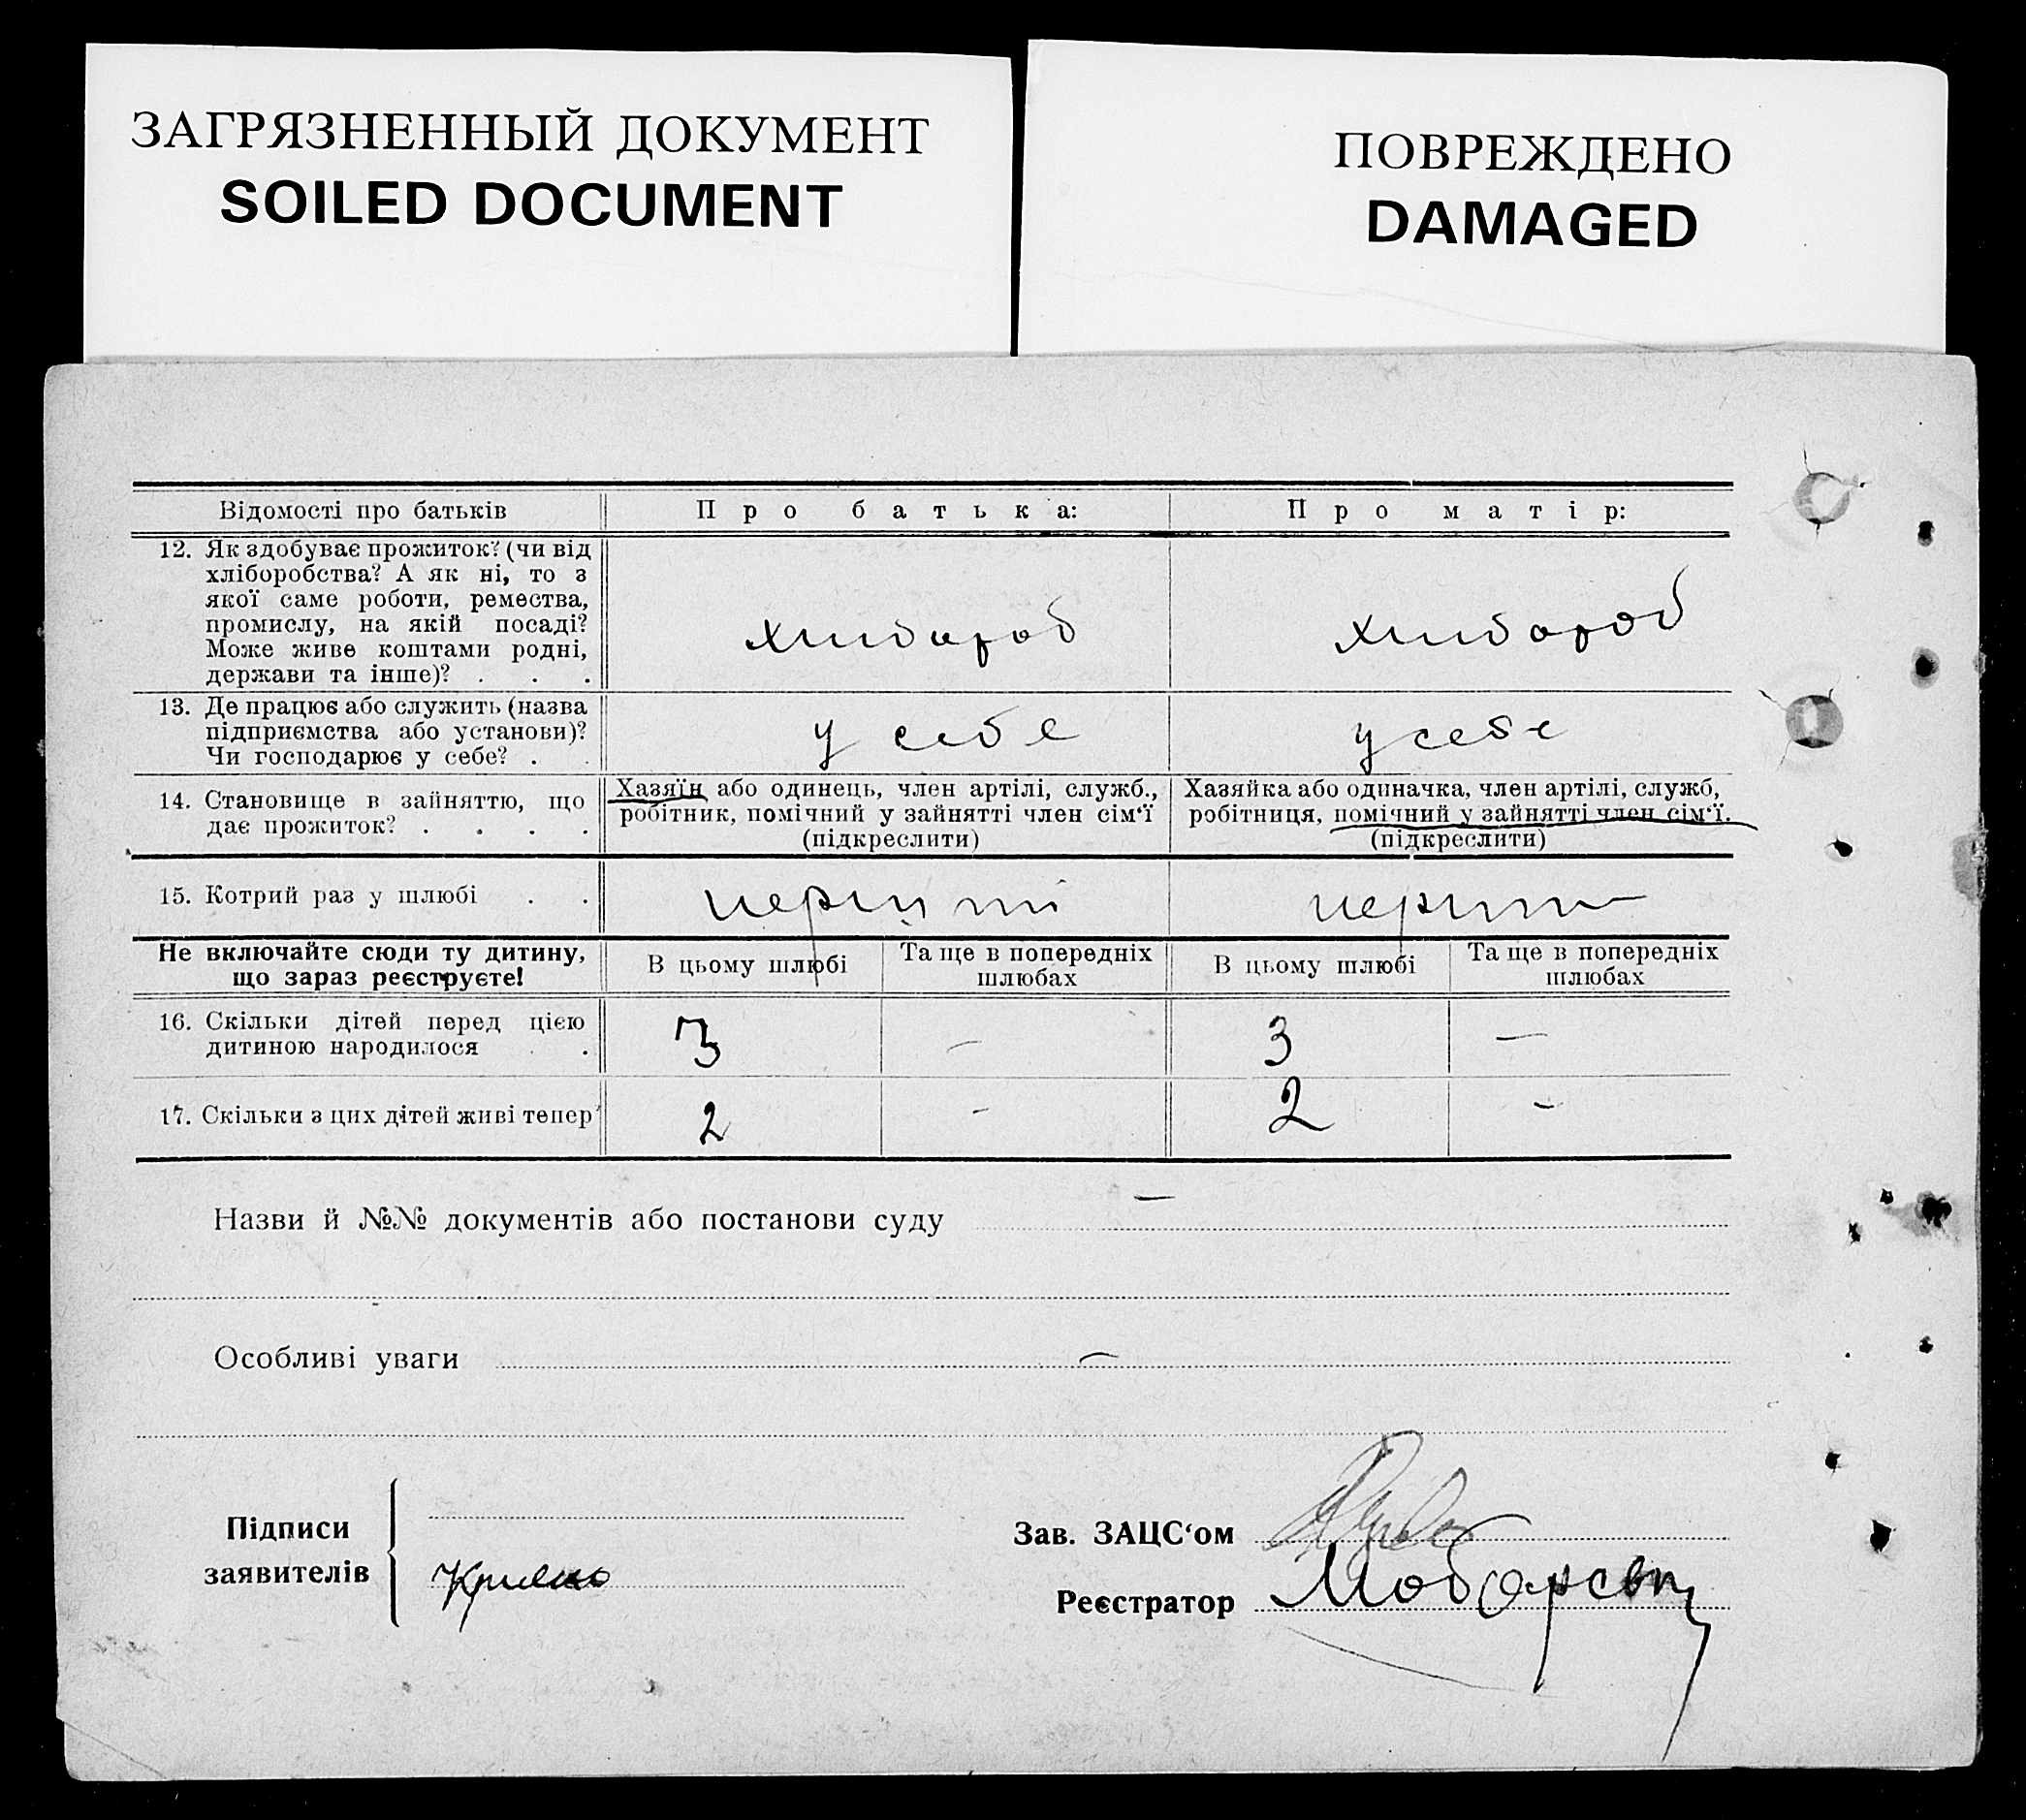 ЗАГРЯЗНЕННЫЙ ДОКУМЕНТ
SOILED DOCUMENT
ПОВРЕЖДЕНО
DAMAGED
Відомості про батьків
Про батька:
Про матір:
12. Як здобуває прожиток? (чи від
хліборобства? А як ні, то з
якої саме роботи, ремества,
промислу, на якій посаді?
Може живе коштами родні,
держави та інше)? . . .
хлібороб
хлібороб
13. Де працює або служить (назва
підприємства або установи)?
Чи господарює у себе? .
у себе
у себе
14. Становище в зайняттю, що
дає прожиток? . . . .
Хазяїн або одинець, член артілі, служб.,
робітник, помічний у зайнятті член сім'ї
(підкреслити)
Хазяйка або одиначка, член артілі, служб,
робітниця, помічний у зайнятті член сім'ї.
(підкреслити)
15. Котрий раз у шлюбі . .
Не включайте сюди ту дитину,
що зараз реєструєте!
В цьому шлюбі
Та ще в попередніх
шлюбах
В цьому шлюбі
Та ще в попередніх
шлюбах
16. Скільки дітей перед цією
дитиною народилося . .
3
—
3
—
17. Скільки з цих дітей живі тепер
2
-
2
-
Назви й №№ документів або постанови суду —
Особливі уваги —
Підписи
заявителів
Зав. ЗАЦС'ом
Реєстратор